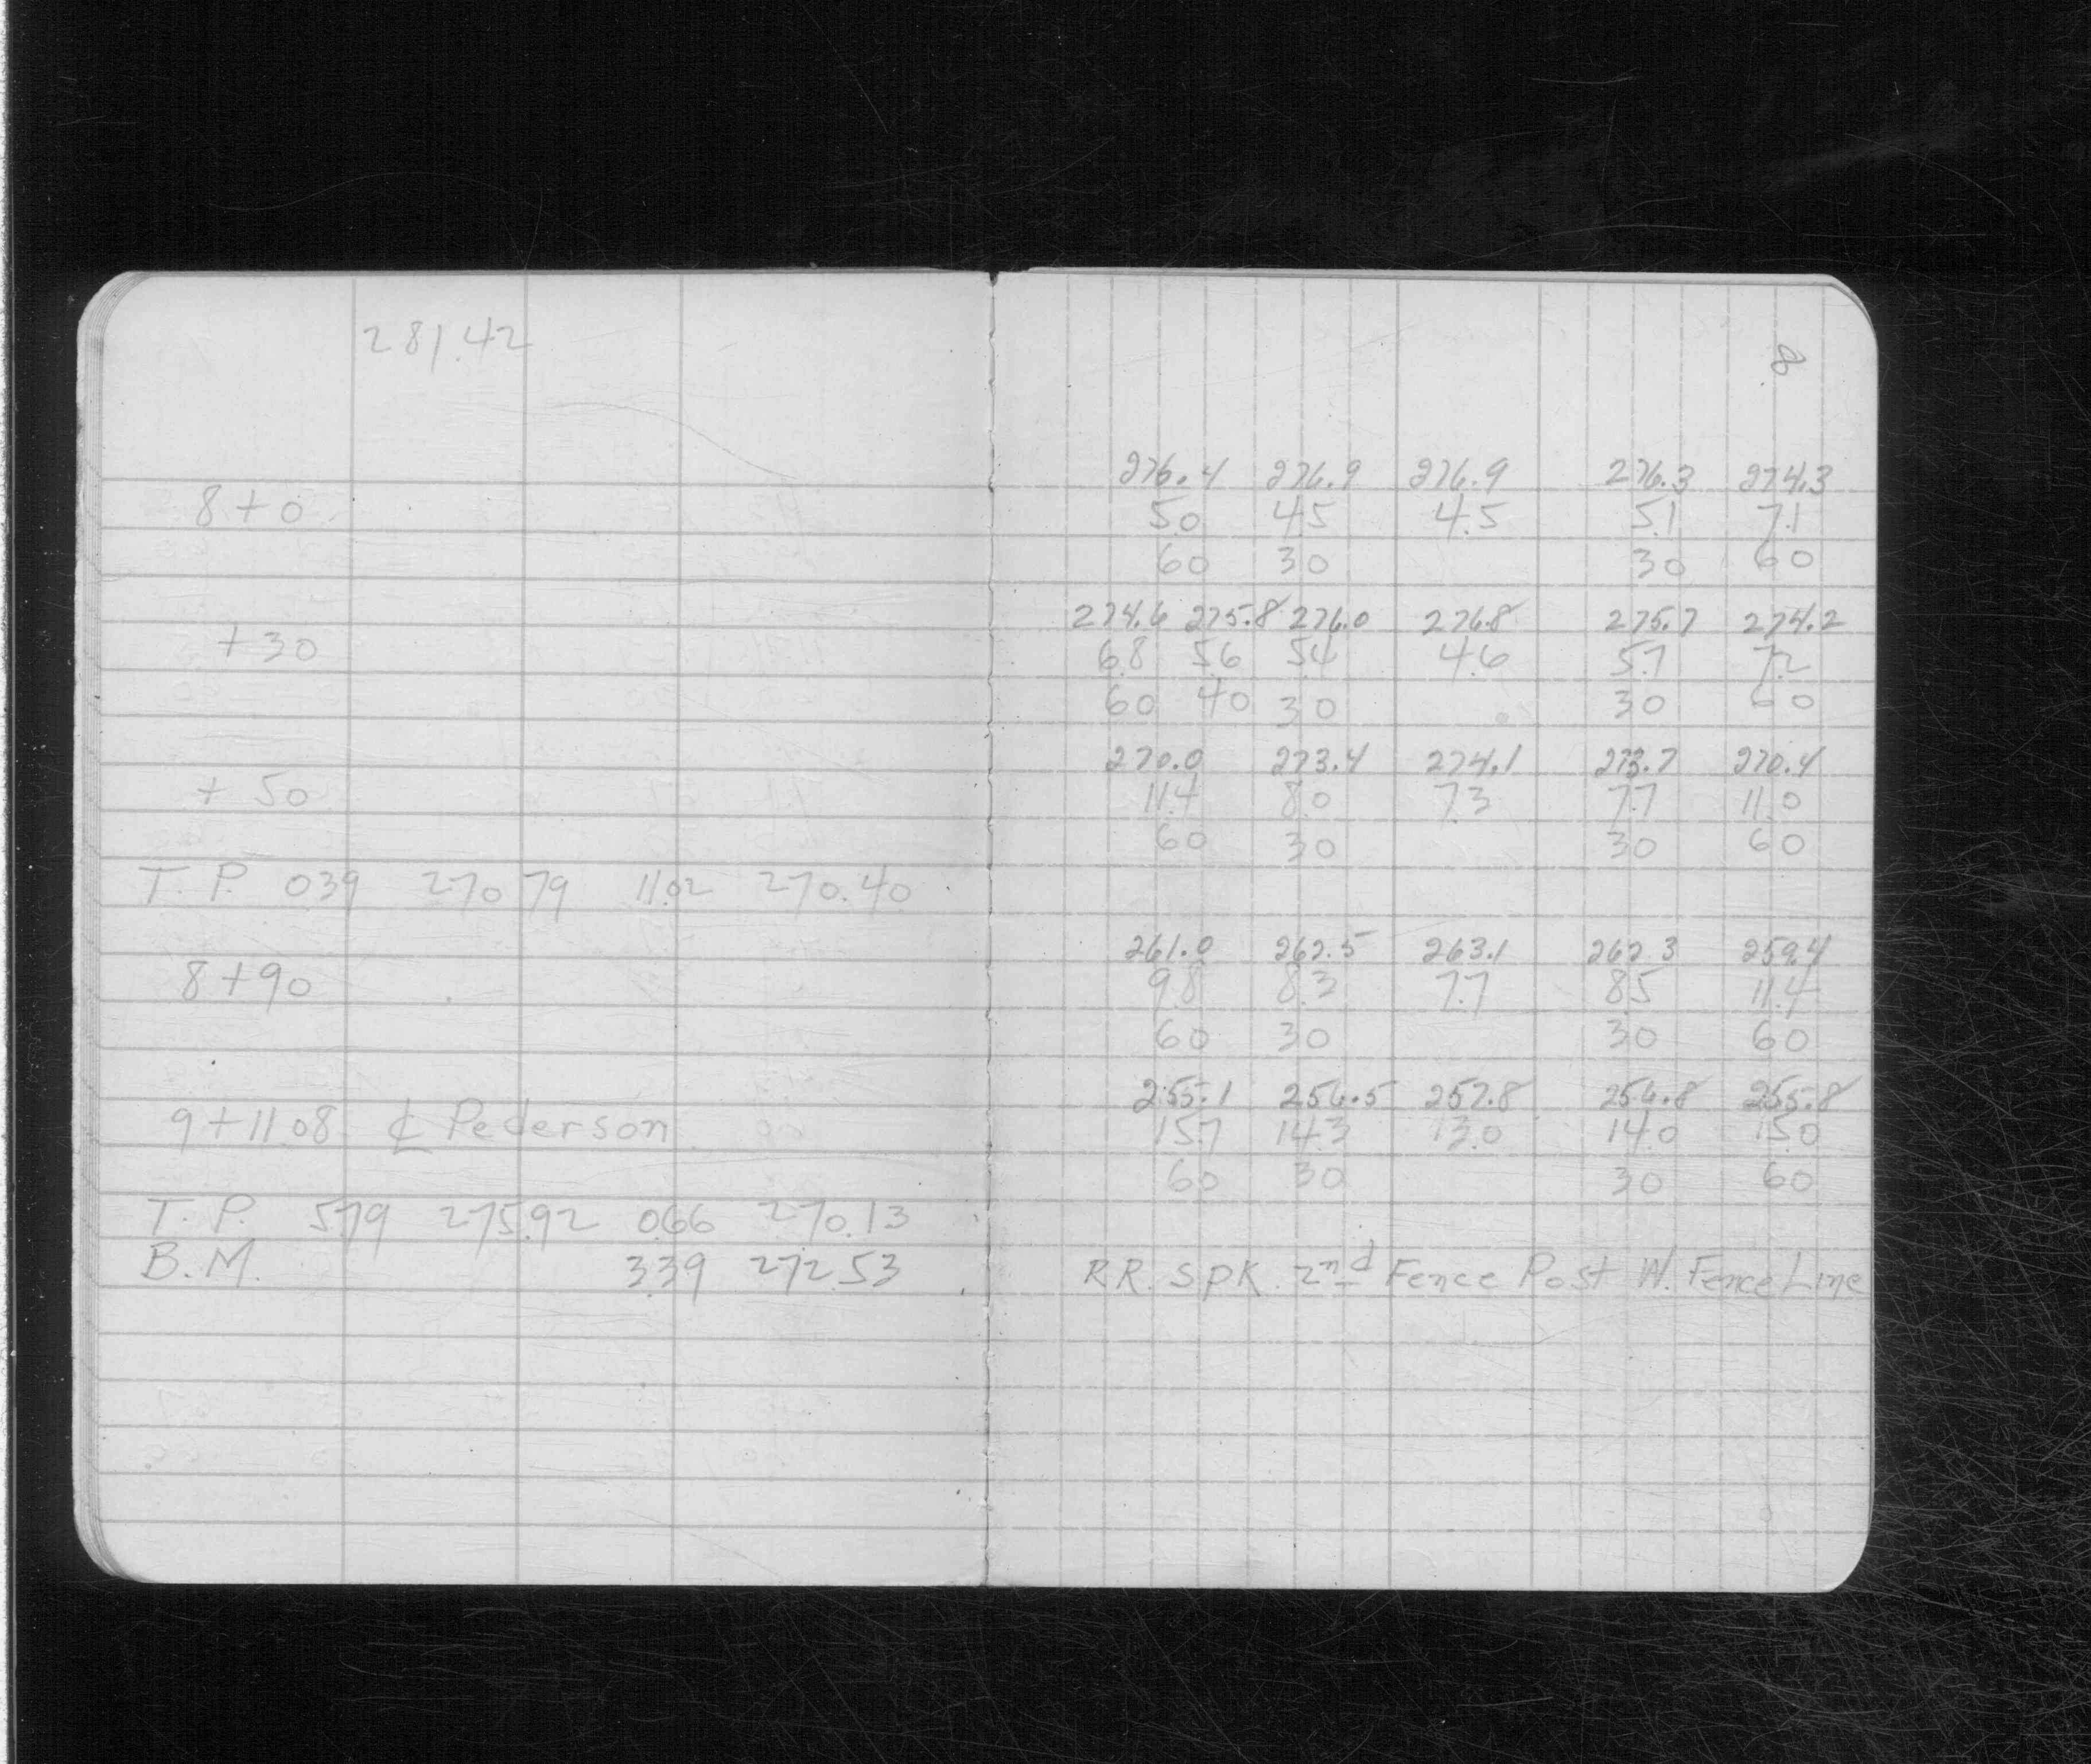 281.42
8
276.4 276.9 276.9 276.3 274.3
8+0 5.0 4.5 4.5 5.1 7.1
60 30 30 60
274.6 275.8 276.0 276.8 275.7 274.2
+30 6.8 5.6 5.4 4.6 5.7 7.2
60 40 30 30 60
270.0 273.4 274.1 273.7 270.4
+50 11.4 8.0 7.3 7.7 11.0
60 30 30 60
T.P. 039 270 79 11.02 270.40
261.0 262.5 263.1 262 3 259.4
8+90 9.8 8.3 7.7 8.5 11.4
60 30 30 60
255.1 256.5 257.8 256.8 255.8
9+11.08 ℄ Pederson 15.7 14.3 13.0 14.0 15.0
60 30 30 60
T.P. 5.79 275.92 0.66 270.13
B.M. 3.39 272.53 RR. SPK. 2nd Fence Post W. Fence Line